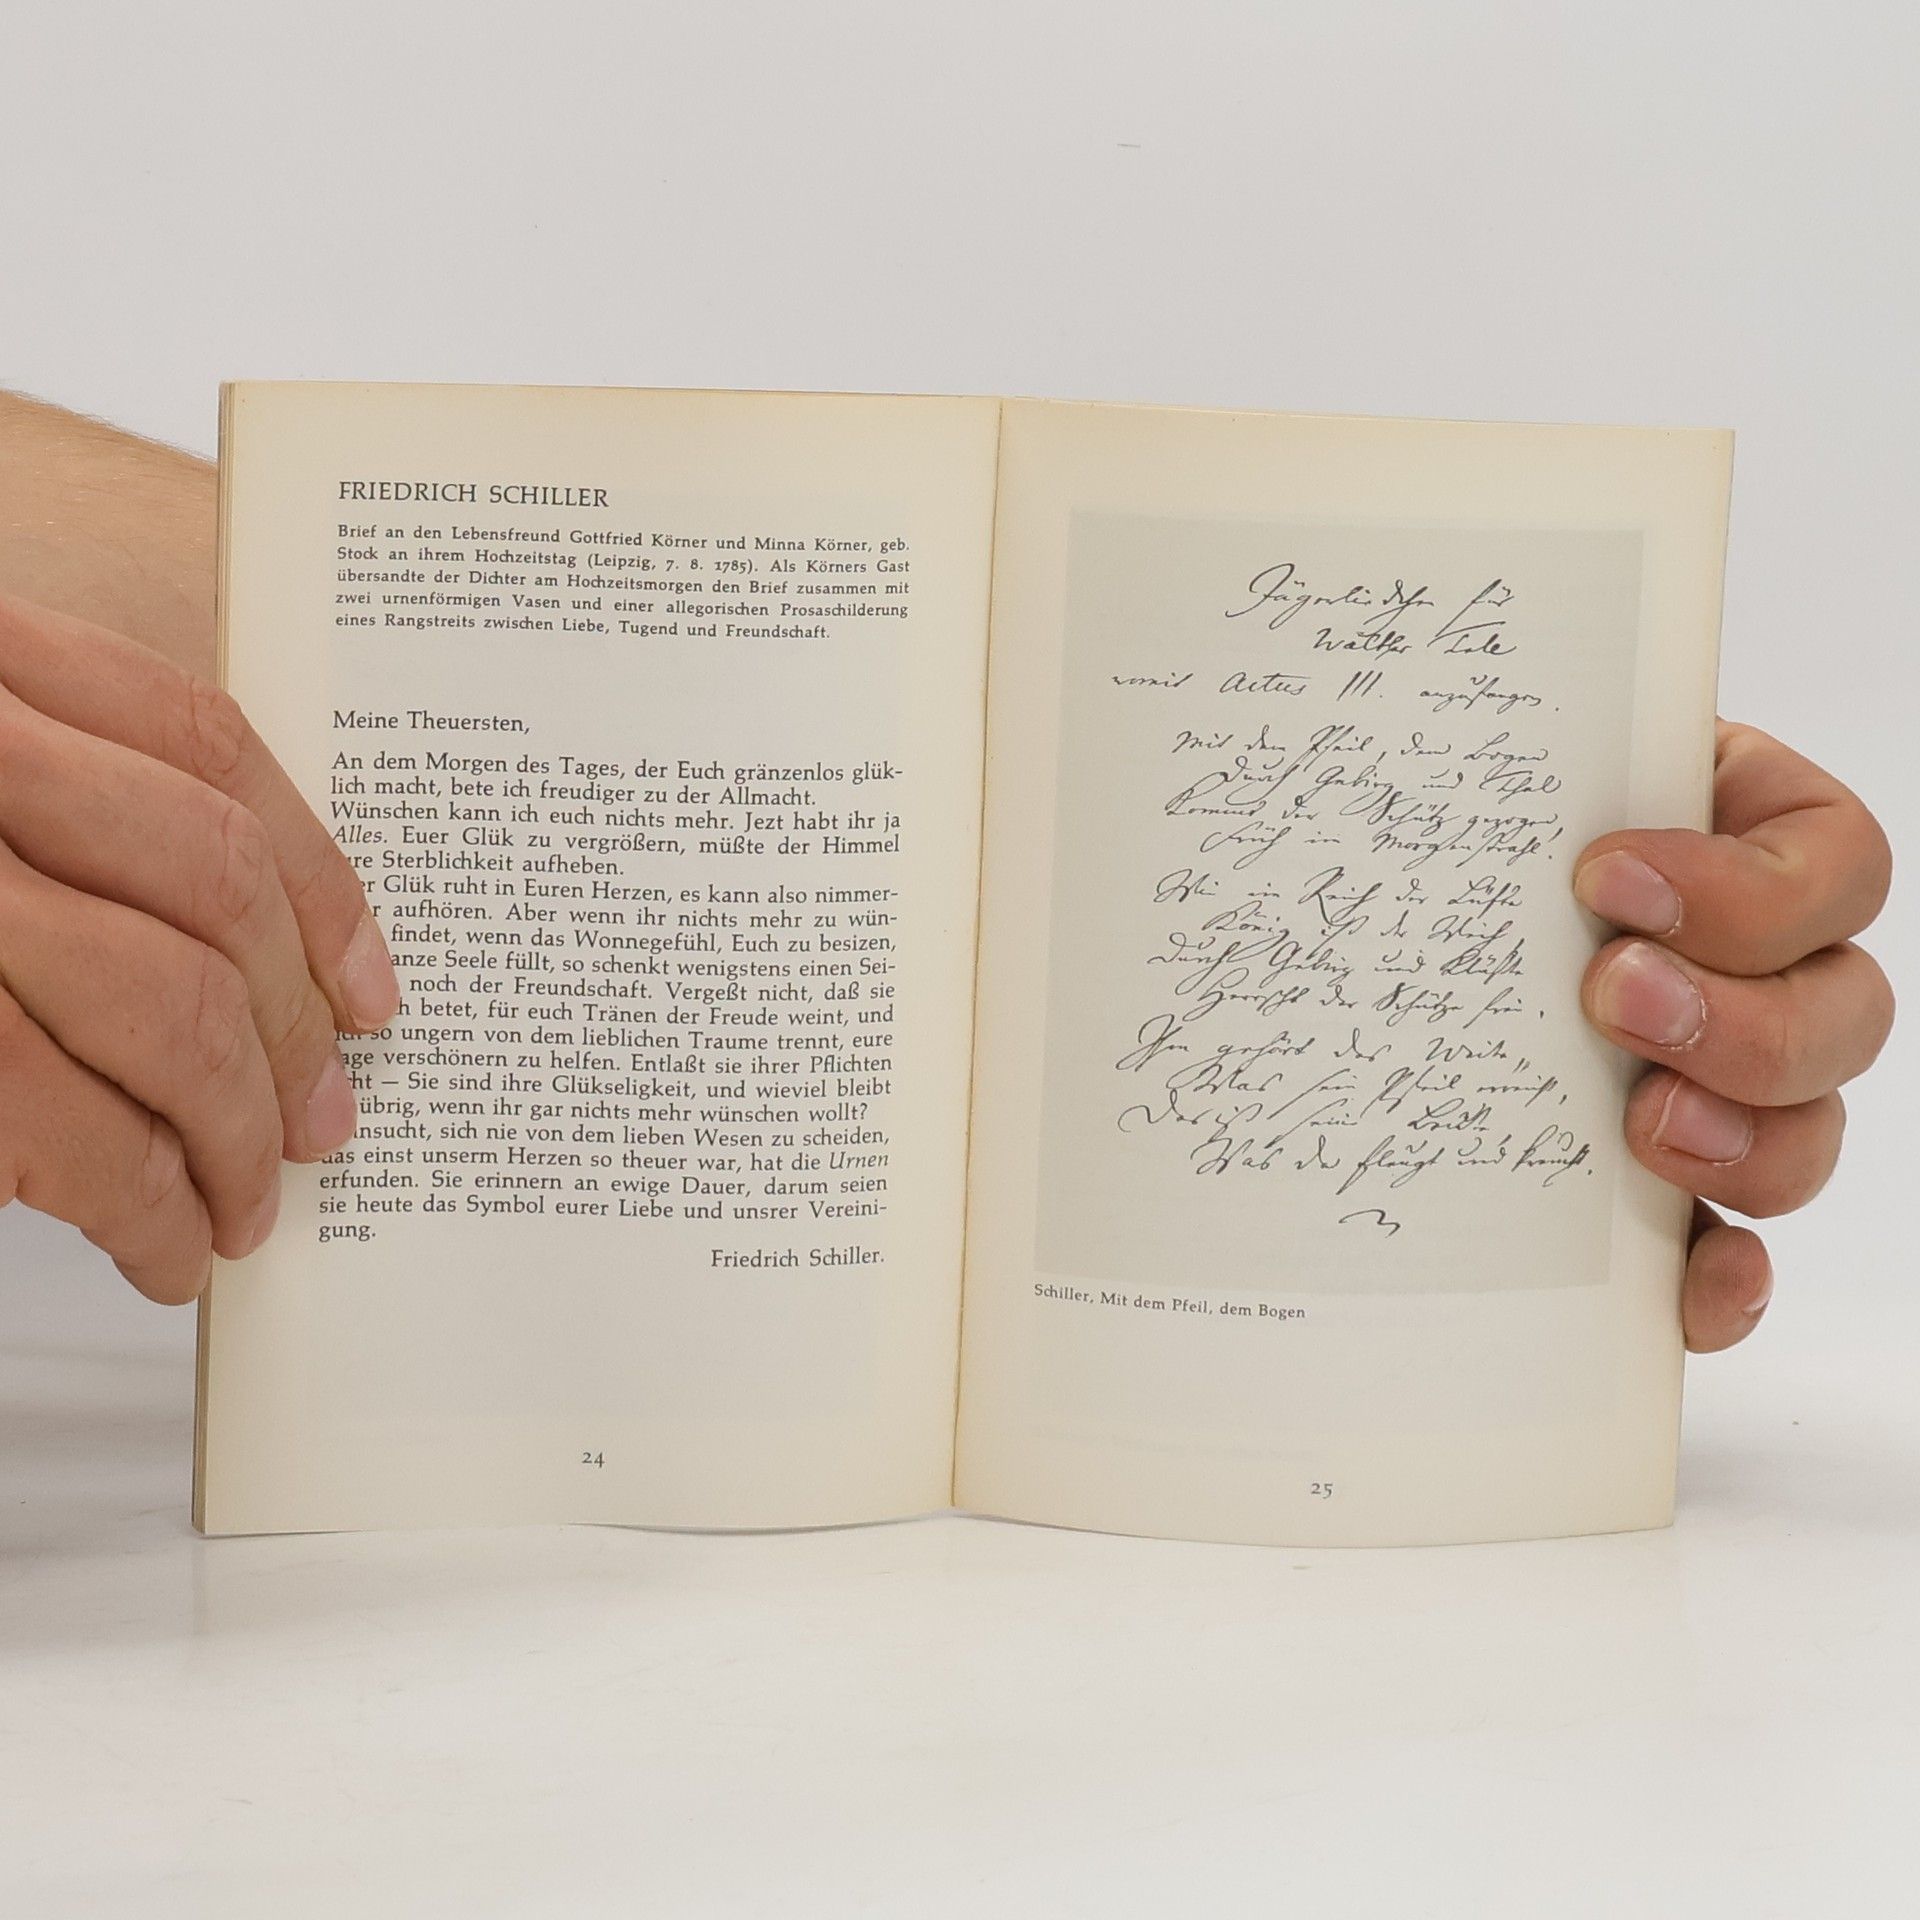 FRIEDRICH SCHILLER
Brief an den Lebensfreund Gottfried Körner und Minna Körner, geb.
Stock an ihrem Hochzeitstag (Leipzig, 7. 8. 1785). Als Körners Gast
übersandte der Dichter am Hochzeitsmorgen den Brief zusammen mit
zwei urnenförmigen Vasen und einer allegorischen Prosaschilderung
eines Rangstreits zwischen Liebe, Tugend und Freundschaft.
Meine Theuersten,
An dem Morgen des Tages, der Euch gränzenlos glük-
lich macht, bete ich freudiger zu der Allmacht.
Wünschen kann ich euch nichts mehr. Jezt habt ihr ja
Alles. Euer Glük zu vergrößern, müßte der Himmel
ure Sterblichkeit aufheben.
er Glük ruht in Euren Herzen, es kann also nimmer-
r aufhören. Aber wenn ihr nichts mehr zu wün-
findet, wenn das Wonnegefühl, Euch zu besizen,
anze Seele füllt, so schenkt wenigstens einen Sei-
noch der Freundschaft. Vergeßt nicht, daß sie
h betet, für euch Tränen der Freude weint, und
so ungern von dem lieblichen Traume trennt, eure
age verschönern zu helfen. Entlaßt sie ihrer Pflichten
cht — Sie sind ihre Glükseligkeit, und wieviel bleibt
übrig, wenn ihr gar nichts mehr wünschen wollt?
nsucht, sich nie von dem lieben Wesen zu scheiden,
das einst unserm Herzen so theuer war, hat die Urnen
erfunden. Sie erinnern an ewige Dauer, darum seien
sie heute das Symbol eurer Liebe und unsrer Vereini-
gung.
Friedrich Schiller.
24
Jägerliedchen für
Walther Tell
womit Actus III. anzufangen.
Mit dem Pfeil, dem Bogen
Durch Gebirg und Thal
Kommt der Schütz gezogen,
Früh im Morgenstrahl.
Wie im Reich der Lüfte
König ist der Weih,
Durch Gebirg und Klüfte
Herrscht der Schütze frei.
Ihm gehört das Weite,
Was sein Pfeil erreicht,
Das ist seine Beute,
Was da fleugt und kreucht.
Schiller, Mit dem Pfeil, dem Bogen
25